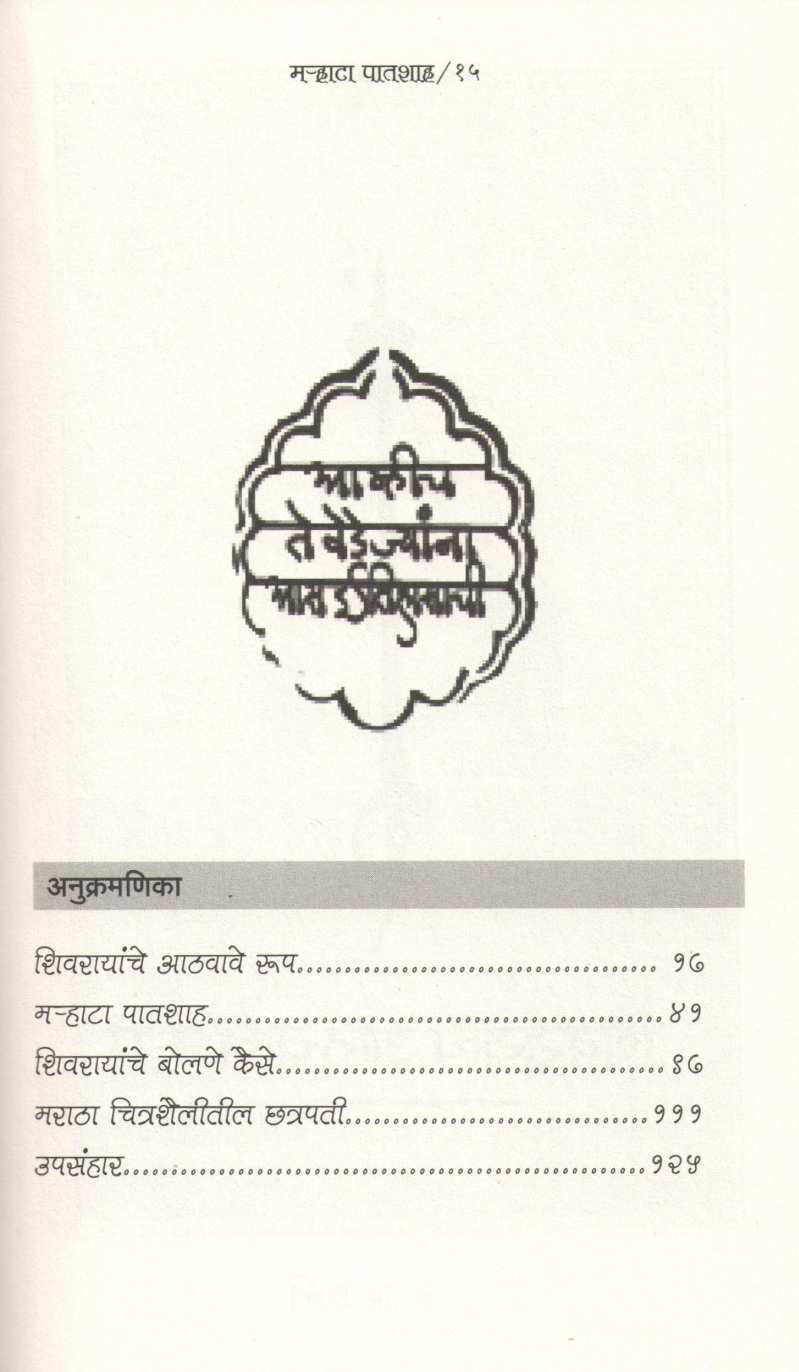 मऱ्हाटा पातशाह/१५
आम्हीच
ते वेडे ज्यांना
आस ईतिहासाची
अनुक्रमणिका
शिवरायांचे आठवावे रूप..................................... १७
मऱ्हाटा पातशाह................................................४१
शिवरायांचे बोलणे कैसे.........................................९७
मराठा चित्रशैलीतील छत्रपती................................१११
उपसंहार.......................................................१२५